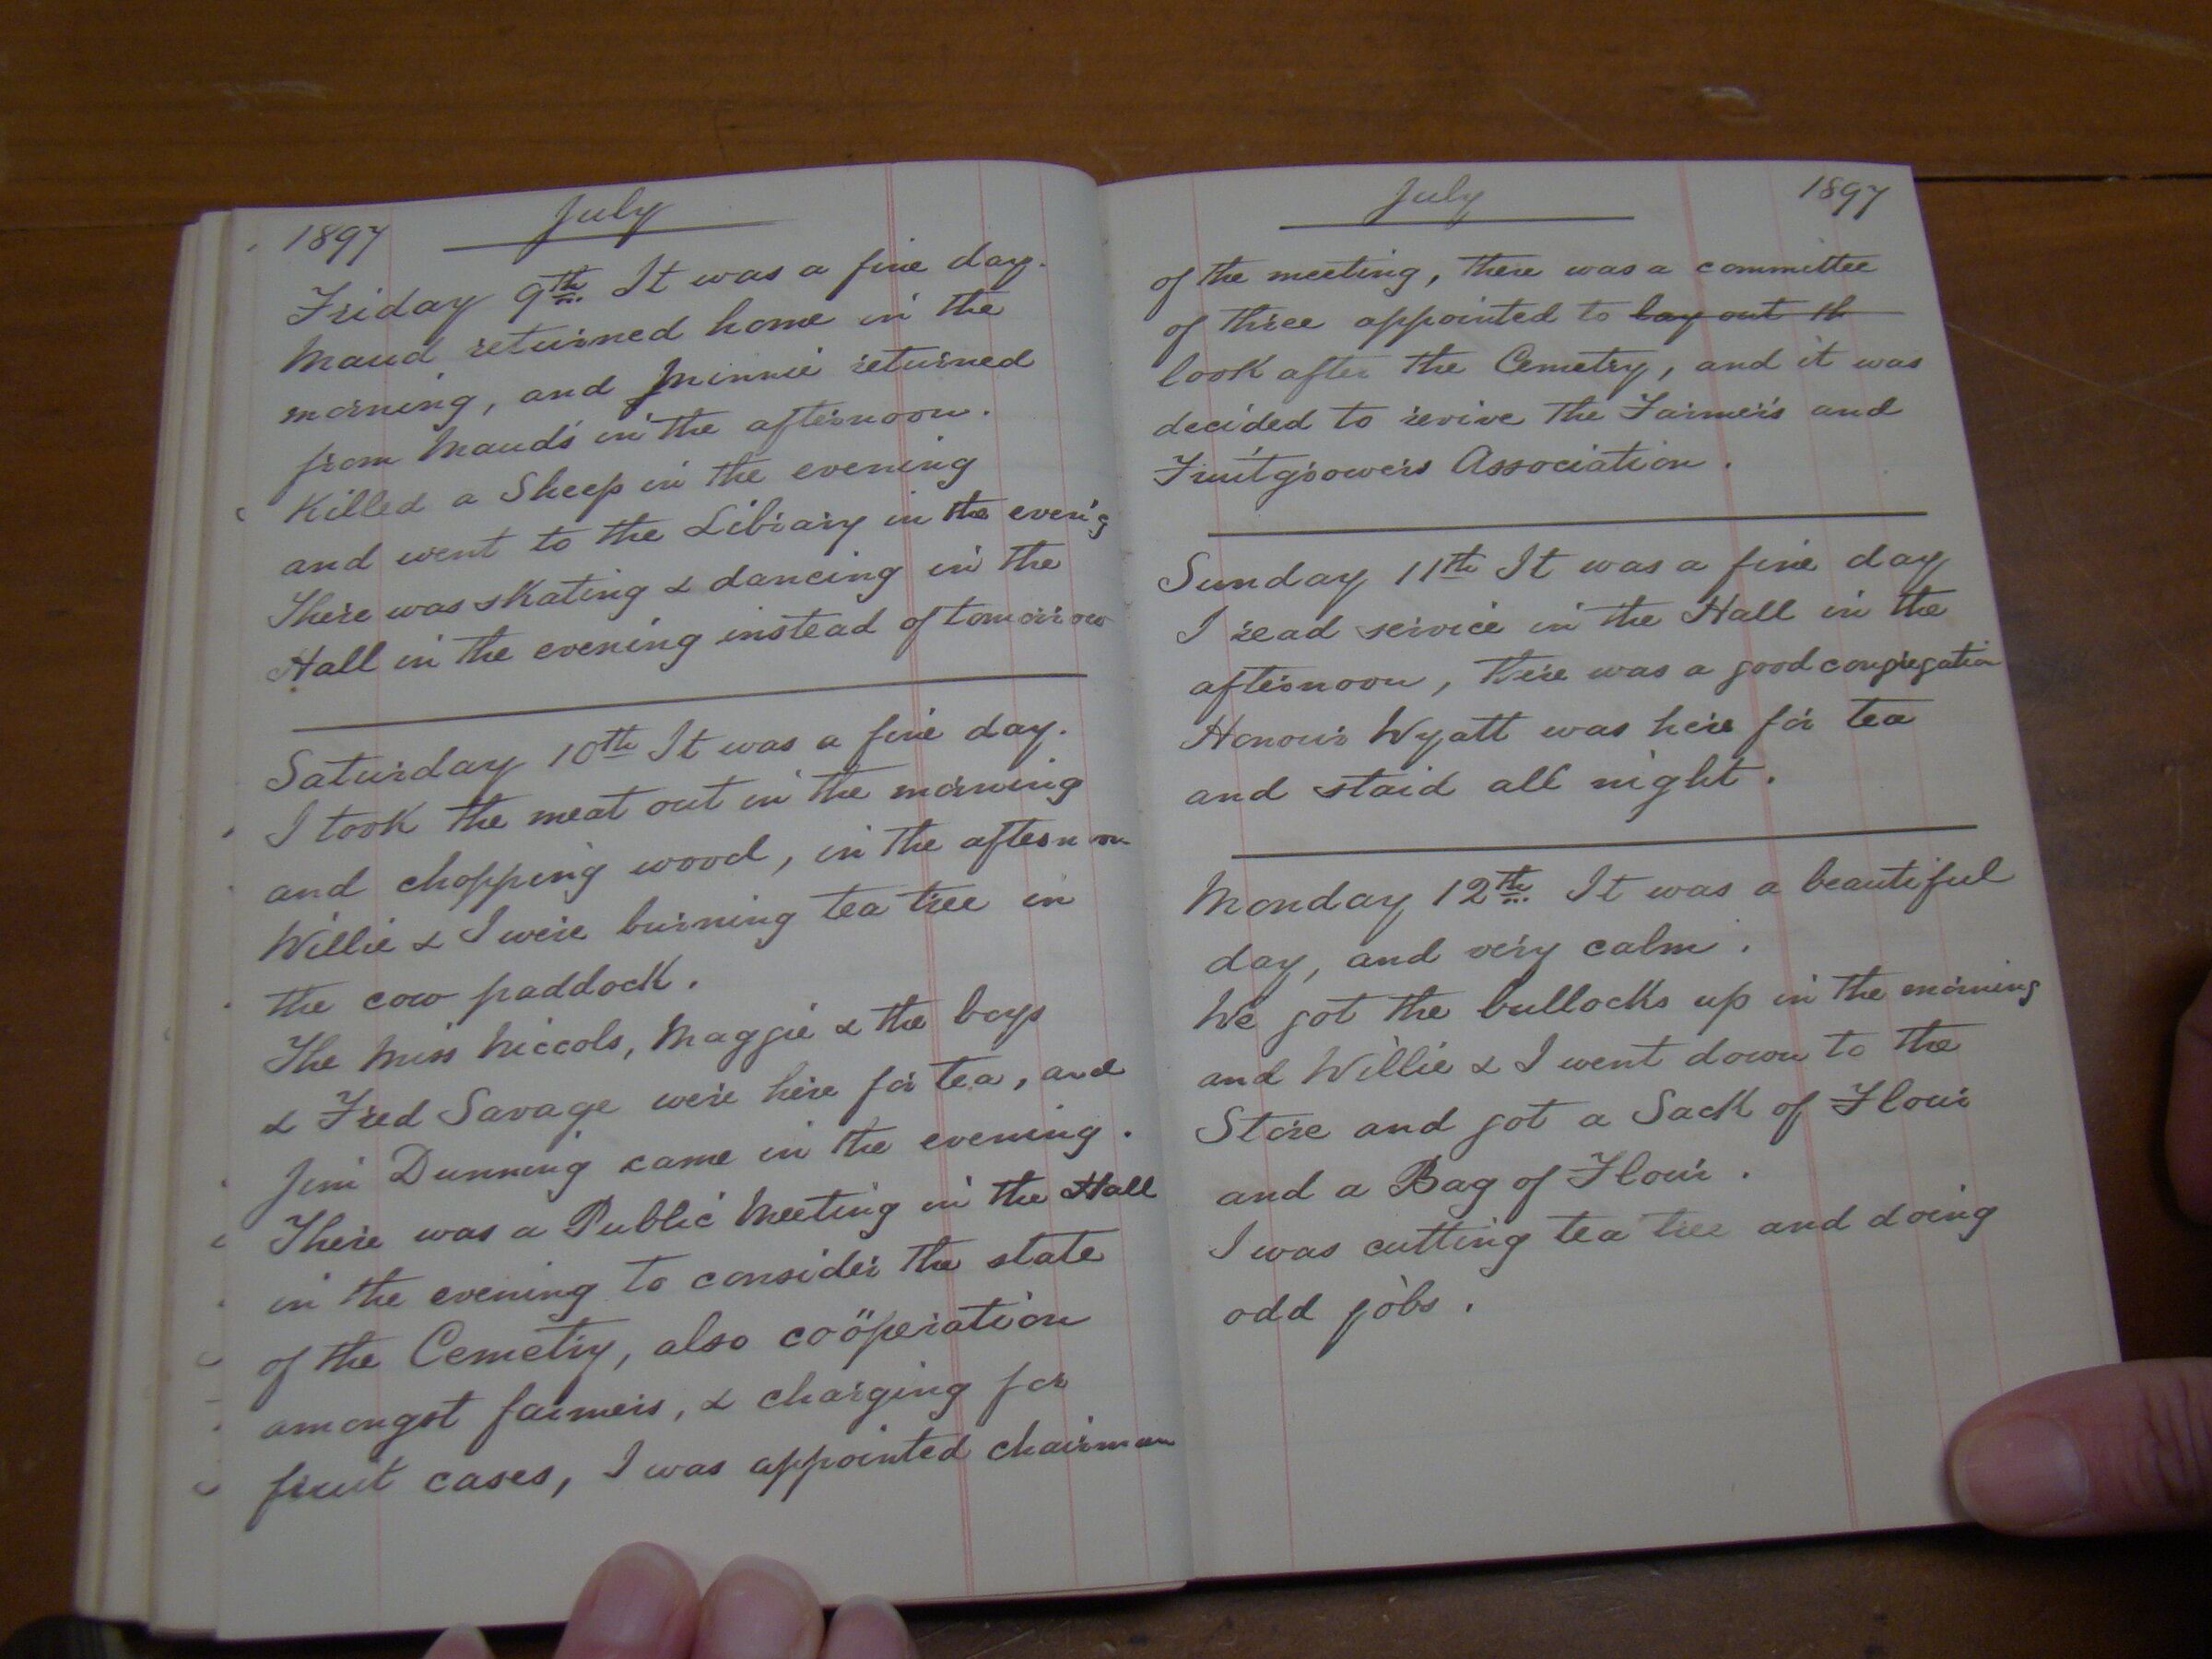 1897 July
Friday 9th. It was a fine day.
Maud returned home in the
morning, and Minnie returned
from Maud's in the afternoon.
Killed a Sheep in the evening
and went to the Library in the even'g
There was skating & dancing in the
Hall in the evening instead of tomorrow
Saturday 10th It was a fine day.
I took the meat out in the morning
and chopping wood, in the afternoon
Willie & I were burning tea tree in
the cow paddock.
The Miss Niccols, Maggie & the boys
& Fred Savage were here for tea, and
Jim Dunning came in the evening.
There was a Public Meeting in the Hall
in the evening to consider the state
of the Cemetry, also coöperation
amongst farmers, & charging for
fruit cases, I was appointed chairman
July 1897
of the meeting, there was a committee
of three appointed to lay out th
look after the Cemetry, and it was
decided to revive the Farmers and
Fruitgrowers Association.
Sunday 11th It was a fine day
I read service in the Hall in the
afternoon, there was a good congregation
Honour Wyatt was here for tea
and staid all night.
Monday 12th. It was a beautiful
day, and very calm.
We got the bullocks up in the morning
and Willie & I went down to the
Store and got a Sack of Flour
and a Bag of Flour.
I was cutting tea tree and doing
odd jobs.